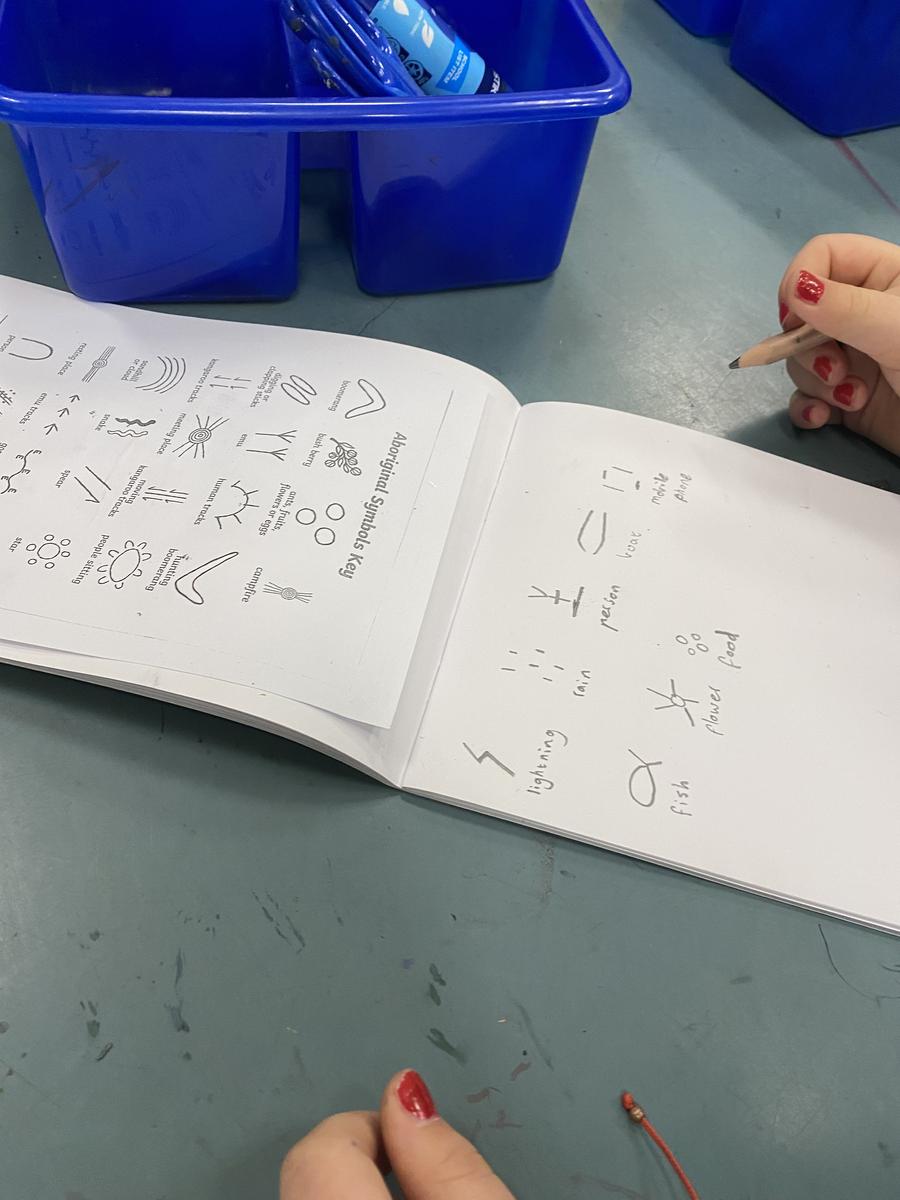 Aboriginal Symbols Key
boomerang
bush berry
ants, fruits,
flowers or eggs
campfire
digging or
clapping sticks
emu
human tracks
hunting
boomerang
kangaroo tracks
meeting place
moving
kangaroo tracks
people sitting
sandhill
or cloud
snake
spear
star
resting place
emu tracks
person
lightning
rain
person
boat
mobile
phone
fish
flower
food
SCHOOL
LIST ITEM